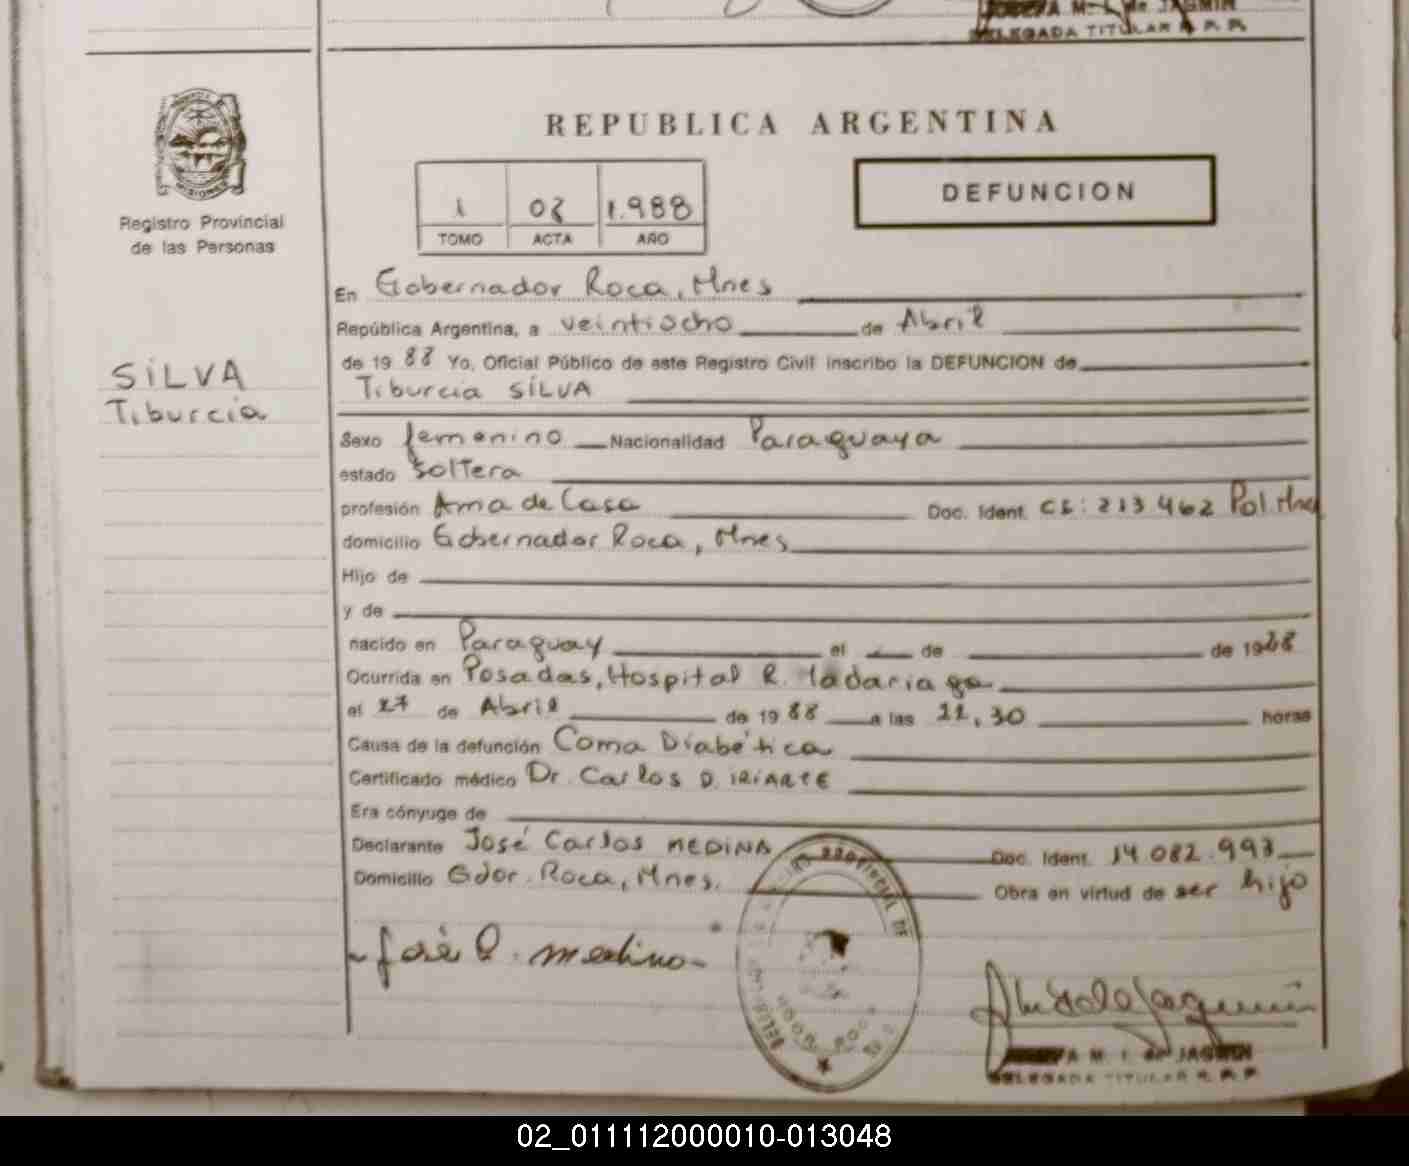 M. L. de JASMIN
DELEGADA TITULAR R. P. P.
REPUBLICA ARGENTINA
DEFUNCION
1 08 1.988
TOMO ACTA AÑO
Registro Provincial
de las Personas
SILVA
Tiburcia
En Gobernador Roca, Mnes
República Argentina, a veintiocho de Abril
de 19 88 Yo, Oficial Público de este Registro Civil inscribo la DEFUNCION de
Tiburcia SILVA
Sexo femenino Nacionalidad Paraguaya
estado Soltera
profesión Ama de Casa Doc. Ident. CI: 213.462 Pol Mnes
domicilio Gobernador Roca, Mnes
Hijo de
y de
nacido en Paraguay el de de 19
Ocurrida en Posadas, Hospital R. Madariaga
el 27 de Abril de 19 88 a las 22,30 horas
Causa de la defunción Coma Diabética
Certificado médico Dr. Carlos D. IRIARTE
Era cónyuge de
Declarante José Carlos MEDINA Doc. Ident. 14.082.993
Domicilio Gdor. Roca, Mnes. Obra en virtud de ser hijo
José C. Medina
PROVINCIAL DE
M. L. de JASMIN
DELEGADA TITULAR R. P. P.
02_011112000010-013048